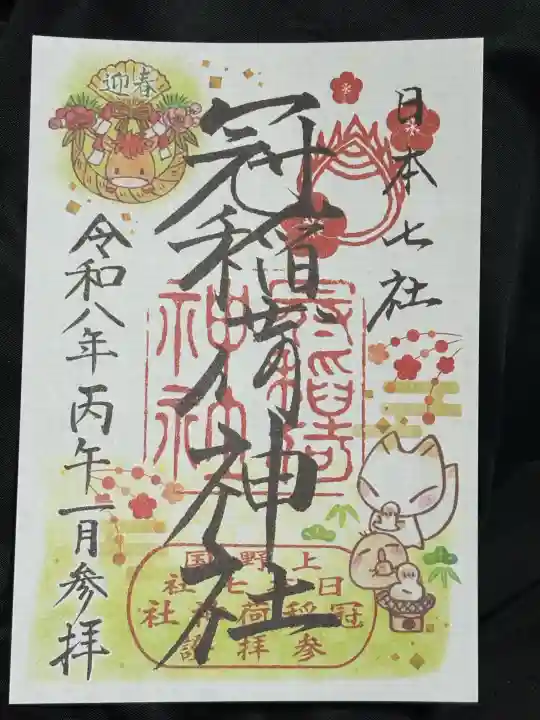 日本七社
冠稲荷神社
令和八年丙午一月参拝
迎春
冠稲荷
神社
上野国
日本七社
冠稲荷神社
参拝証